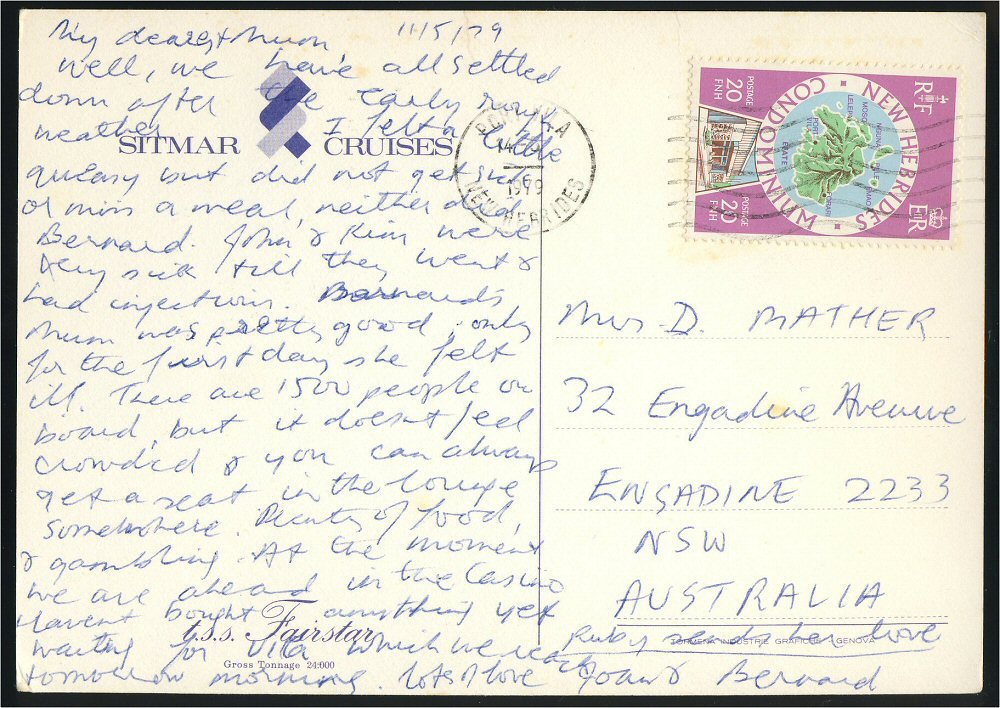 My dearest Mum 11/5/79
Well, we have all settled
down after the early rough
weather. I felt a little
SITMAR CRUISES
queasy but did not get sick
or miss a meal, neither did
Bernard. John & Kim were
very sick till they went &
had injections. Bernard's
Mum was pretty good, only
for the first day she felt
ill. There are 1500 people on
board, but it doesnt feel
crowded & you can always
get a seat in the lounge
somewhere. Plenty of food,
& gambling. At the moment
we are ahead in the Casino
Havent bought anything yet
t.s.s. Fairstar
waiting for Vila which we reach
Gross Tonnage 24.000
tomorrow morning. Lots of love Joan & Bernard
Ruby sends her love
PORT VILA
1979
NEW HEBRIDES
NEW HEBRIDES
CONDOMINIUM
RF
EIIR
POSTAGE
20
FNH
POSTAGE
20
FNH
MOSO
LELEPA
NGUNA
PELE
EMAO
EFATE
PORT VILA
Mrs D. MATHER
32 Engadine Avenue
ENGADINE 2233
NSW
AUSTRALIA
TORMENA INDUSTRIE GRAFICHE - GENOVA